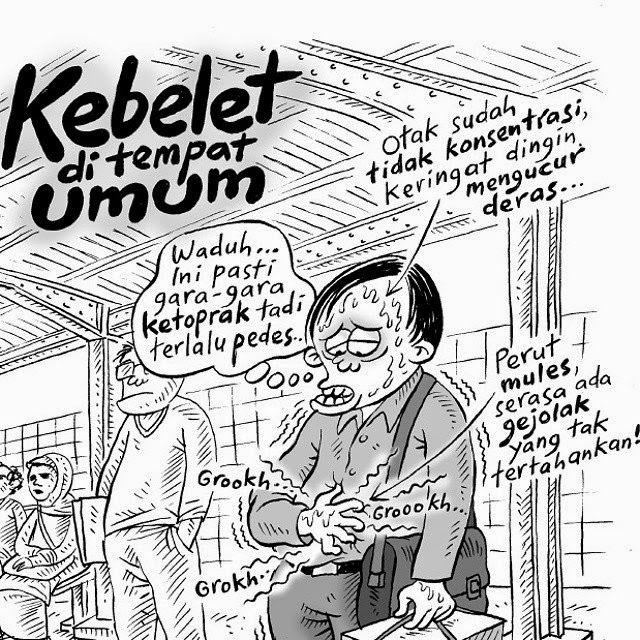 Kebelet
di tempat
umum
Otak sudah
tidak konsentrasi,
keringat dingin
mengucur
deras...
Waduh...
Ini pasti
gara-gara
ketoprak tadi
terlalu pedes..
Perut
mules,
serasa ada
gejolak
yang tak
tertahankan!
Grookh..
Groookh...
Grokh..